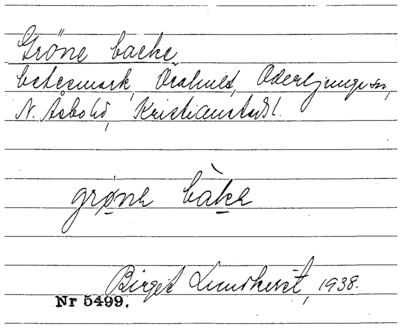 Gröne backe
betesmark, Örahult, Oderljunga sn,
N. Åsbo hd, Kristianstads l.
grøne bàke
Birgit Lundkvist, 1938.
Nr 5499.